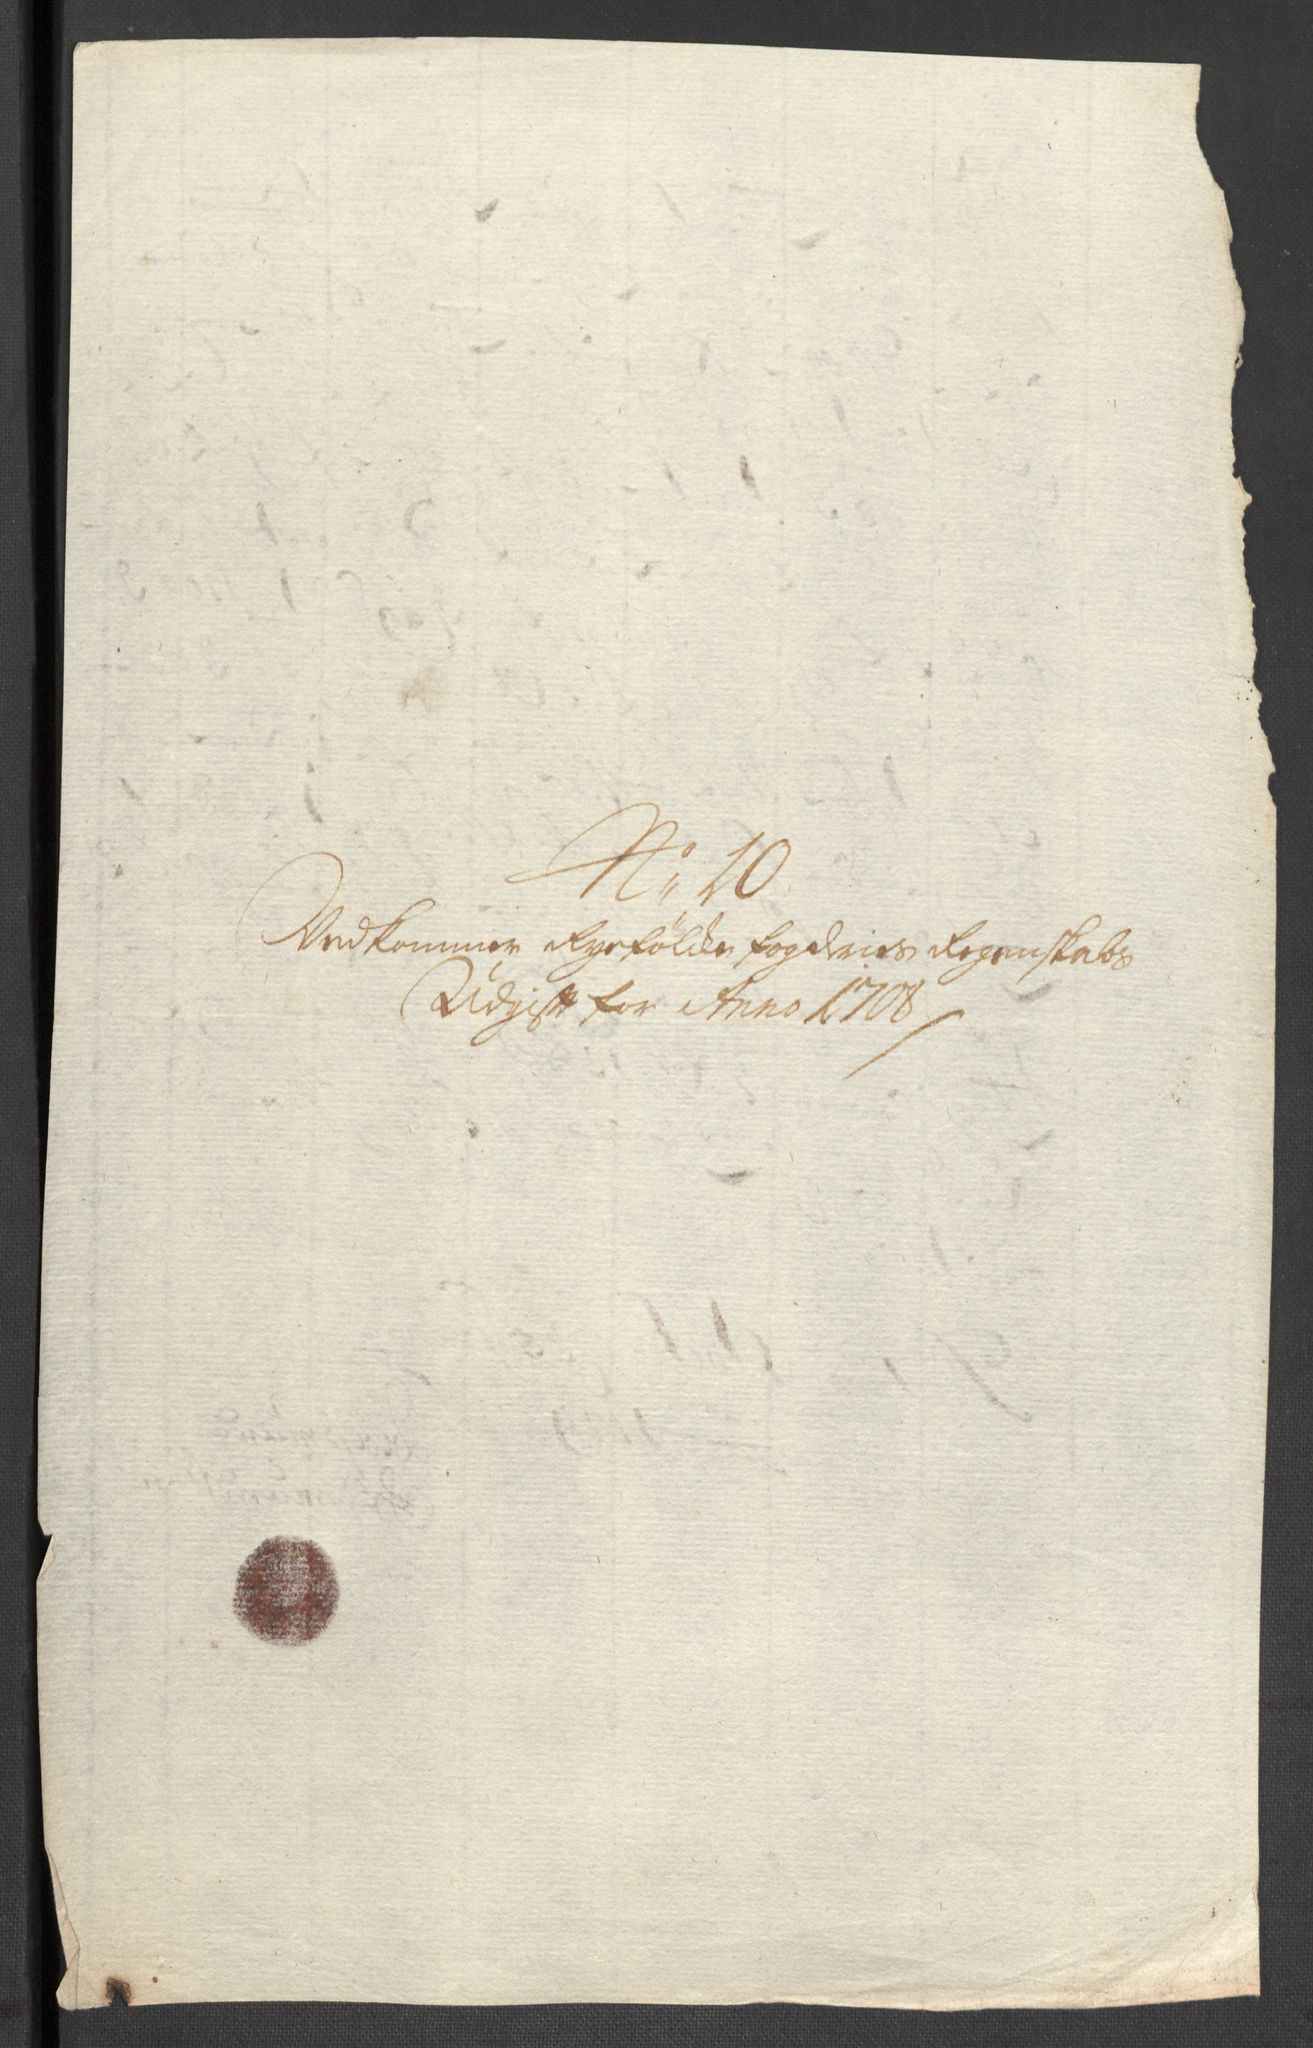 No: 10
Vedkommer Ryefölke fogderies Regenskabs
Udgift for Anno 1708